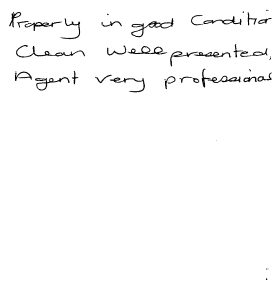 Property in good Conditio
Clean Well presented,
Agent very professional